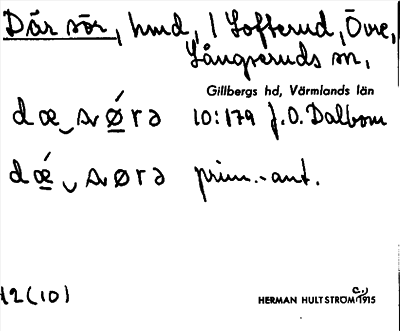 Där sör, hmd, 1 Lofterud, Övre,
Långseruds sn,
Gillbergs hd, Värmlands län
dæ‿sǿrə 10:179 J.O. Dalbom
dǽ‿sørə prim.-ant.
12(10)
HERMAN HULTSTRÖM c.) 1915